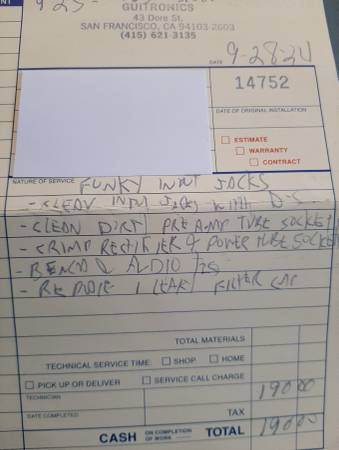 GUITRONICS
43 Dore St.
SAN FRANCISCO, CA 94103-2603
(415) 621-3135
DATE 9-28-20
14752
DATE OF ORIGINAL INSTALLATION
ESTIMATE
WARRANTY
CONTRACT
NATURE OF SERVICE FUNKY INPUT JACKS
- CLEAN INPUT JACKS WITH
- CLEAN DIRTY PREAMP TUBE SOCKETS
- CRIMP RECTIFIER & POWER TUBE SOCKETS
AUDIO
1 LEAKY FILTER CAP
TOTAL MATERIALS
TECHNICAL SERVICE TIME: SHOP HOME
PICK UP OR DELIVER SERVICE CALL CHARGE 190 00
TECHNICIAN
TAX
DATE COMPLETED
CASH ON COMPLETION OF WORK TOTAL 190 00